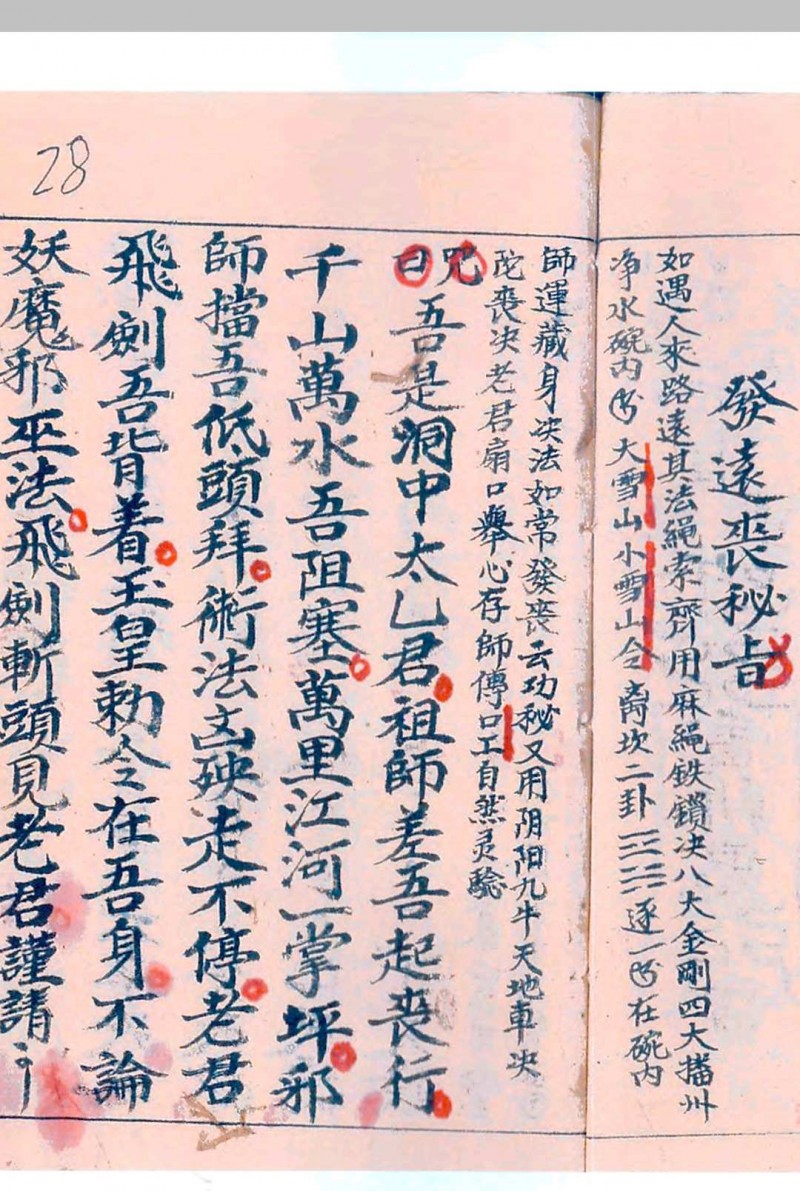 發遠喪秘旨
如遇人來路遠其法繩索齊用麻繩鉄鎖决八大金剛四大播州
净水碗内 大雪山小雪山令 离坎二卦☲☵逐一 在碗内
師運藏身决法如常發喪云功秘又用阴阳九牛天地車决
陀喪决老君扇口舉心存師傳口工自然灵驗
咒曰
吾是洞中太乙君祖師差吾起喪行
千山萬水吾阻塞萬里江河一掌坪邪
師擋吾低頭拜術法凶殃走不停老君
飛劍吾背着玉皇勅令在吾身不論
妖魔邪巫法飛劍斬頭見老君謹請
28